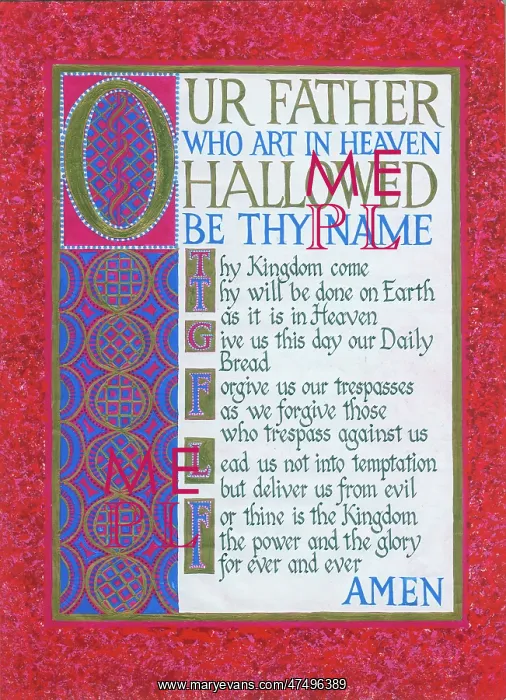 OUR FATHER
WHO ART IN HEAVEN
HALLOWED
BE THY NAME
Thy Kingdom come
Thy will be done on Earth
as it is in Heaven
Give us this day our Daily
Bread
Forgive us our trespasses
as we forgive those
who trespass against us
Lead us not into temptation
but deliver us from evil
For thine is the Kingdom
the power and the glory
for ever and ever
AMEN
ME
PL
ME
PL
www.maryevans.com/47496389